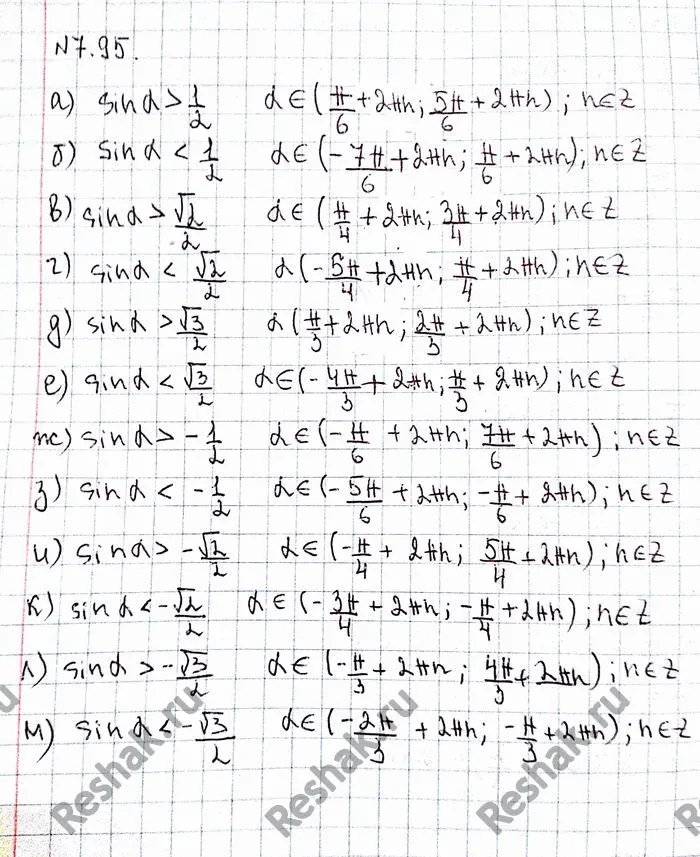 N7.95.
а) sin α > 1/2 α ∈ (π/6 + 2πn; 5π/6 + 2πn); n ∈ Z
б) sin α < 1/2 α ∈ (-7π/6 + 2πn; π/6 + 2πn); n ∈ Z
в) sin α > √2/2 α ∈ (π/4 + 2πn; 3π/4 + 2πn); n ∈ Z
г) sin α < √2/2 α (-5π/4 + 2πn; π/4 + 2πn); n ∈ Z
д) sin α > √3/2 α (π/3 + 2πn; 2π/3 + 2πn); n ∈ Z
е) sin α < √3/2 α ∈ (-4π/3 + 2πn; π/3 + 2πn); n ∈ Z
ж) sin α > -1/2 α ∈ (-π/6 + 2πn; 7π/6 + 2πn); n ∈ Z
з) sin α < -1/2 α ∈ (-5π/6 + 2πn; -π/6 + 2πn); n ∈ Z
и) sin α > -√2/2 α ∈ (-π/4 + 2πn; 5π/4 + 2πn); n ∈ Z
к) sin α < -√2/2 α ∈ (-3π/4 + 2πn; -π/4 + 2πn); n ∈ Z
л) sin α > -√3/2 α ∈ (-π/3 + 2πn; 4π/3 + 2πn); n ∈ Z
м) sin α < -√3/2 α ∈ (-2π/3 + 2πn; -π/3 + 2πn); n ∈ Z
Reshak.ru
Reshak.ru
Reshak.ru